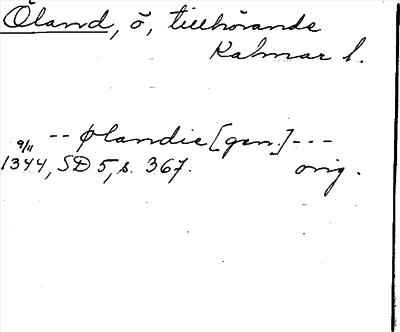 Öland, ö, tillhörande
Kalmar l.
-- Ølandie [gen.] ---
9/11
1344, SD 5, s. 367. orig.